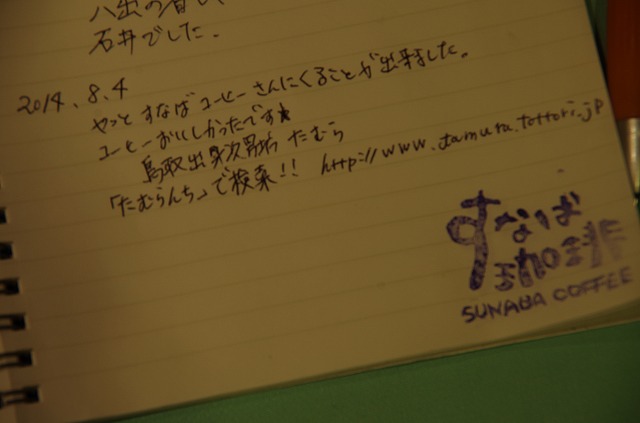 石井でした.
2014.8.4
やっと すなば コーヒー さんにくることが出来ました。
コーヒーおいしかったです★
鳥取出身次男坊 たむら
「たむらんち」で検索!! http://www.tamura.tottori.jp
すなば
珈琲
SUNABA COFFEE